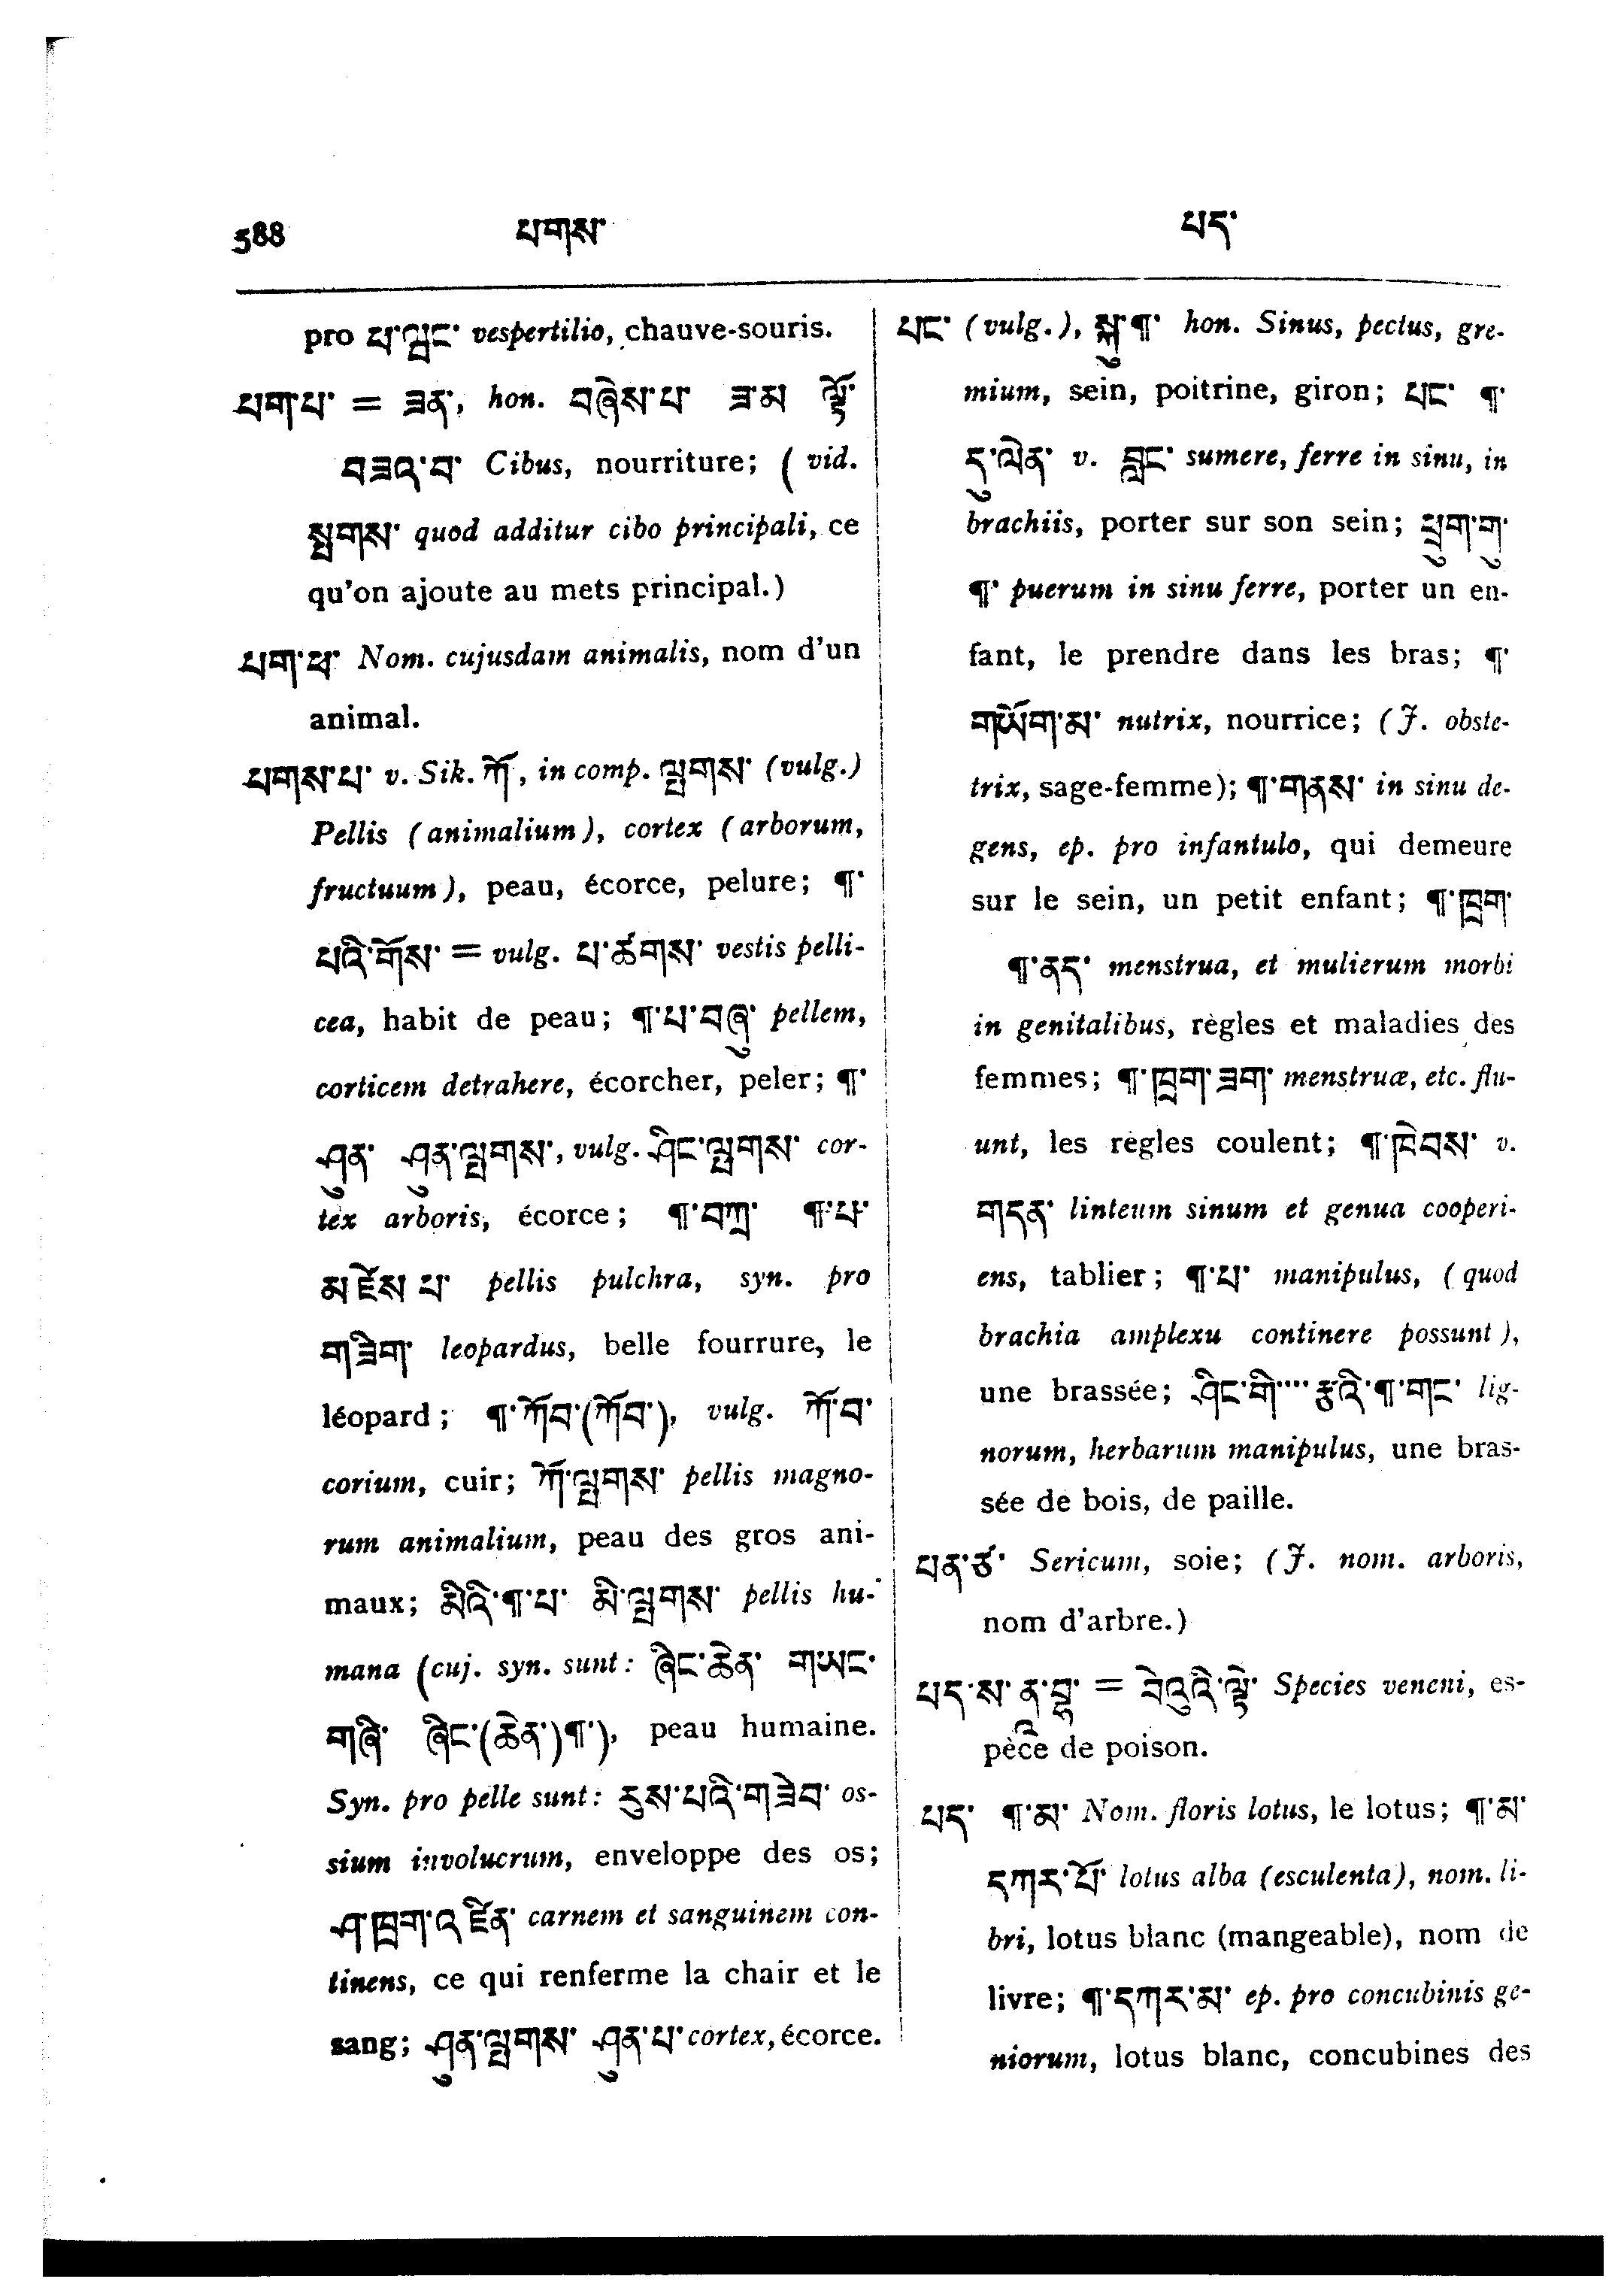 588 པགས་ པད་
pro པ་ལྦང་ vespertilio, chauve-souris.
པག་པ་ = ཟན་, hon. བཞེས་པ་ ཟ་མ ལྟོ་
བཟའ་བ་ Cibus, nourriture; (vid.
སྤགས་ quod additur cibo principali, ce
qu'on ajoute au mets principal.)
པག་ཕ་ Nom. cujusdam animalis, nom d'un
animal.
པགས་པ་ v. Sik. ཀོ་, in comp. ལྤགས་ (vulg.)
Pellis (animalium), cortex (arborum,
fructuum), peau, écorce, pelure; ¶་
པའི་གོས་ = vulg. པ་ཚགས་ vestis pelli-
cea, habit de peau; ¶་པ་བཞུ་ pellem,
corticem detrahere, écorcher, peler; ¶་
ཤུན་ ཤུན་ལྤགས་, vulg. ཤིང་ལྤགས་ cor-
tex arboris, écorce; ¶་བཀྲ་ ¶་པ་
མཛེས པ་ pellis pulchra, syn. pro
གཟིག་ leopardus, belle fourrure, le
léopard; ¶་ཀོབ་(ཀོབ་), vulg. ཀོ་བ་
corium, cuir; ཀོ་ལྤགས་ pellis magno-
rum animalium, peau des gros ani-
maux; མིའི་¶་པ་ མི་ལྤགས་ pellis hu-
mana (cuj. syn. sunt: ཞིང་ཆེན་ གཡང་
གཞི་ ཞིང་(ཆེན་)¶་), peau humaine.
Syn. pro pelle sunt: རུས་པའི་གཟེབ་ os-
sium involucrum, enveloppe des os;
ཤ་ཁྲག་འཛིན་ carnem et sanguinem con-
tinens, ce qui renferme la chair et le
sang; ཤུན་ལྤགས་ ཤུན་པ་ cortex, écorce.
པང་ (vulg.), སྐུ་¶་ hon. Sinus, pectus, gre-
mium, sein, poitrine, giron; པང་ ¶་
དུ་ལེན་ v. བླང་ sumere, ferre in sinu, in
brachiis, porter sur son sein; ཕྲུག་གུ་
¶་ puerum in sinu ferre, porter un en-
fant, le prendre dans les bras; ¶་
གཡོག་མ་ nutrix, nourrice; (J. obste-
trix, sage-femme); ¶་གནས་ in sinu de-
gens, ep. pro infantulo, qui demeure
sur le sein, un petit enfant; ¶་ཁྲག་
¶་ནད་ menstrua, et mulierum morbi
in genitalibus, règles et maladies des
femmes; ¶་ཁྲག་ཟག་ menstruæ, etc. flu-
unt, les règles coulent; ¶་ཁེབས་ v.
གདན་ linteum sinum et genua cooperi-
ens, tablier; ¶་པ་ manipulus, (quod
brachia amplexu continere possunt),
une brassée; ཤིང་གི་... རྩྭའི་¶་གང་ lig-
norum, herbarum manipulus, une bras-
sée de bois, de paille.
པན་ཙ་ Sericum, soie; (J. nom. arboris,
nom d'arbre.)
པད་ས་ = བེའུའི་ལྟེ་ Species veneni, es-
pèce de poison.
པད་ ¶་མ་ Nom. floris lotus, le lotus; ¶་མ་
དཀར་པོ་ lotus alba (esculenta), nom. li-
bri, lotus blanc (mangeable), nom de
livre; ¶་དཀར་མ་ ep. pro concubinis ge-
niorum, lotus blanc, concubines des